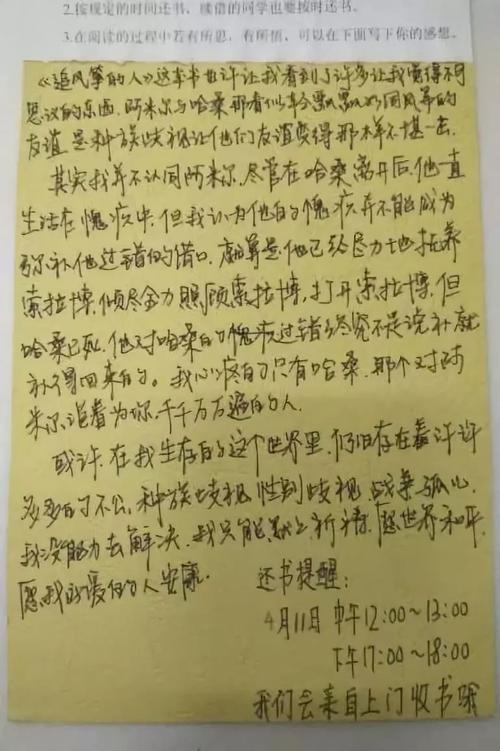 2.按规定的时间还书，续借的同学也要按时还书。
3.在阅读的过程中若有所思，有所悟，可以在下面写下你的感想。
《追风筝的人》这本书也许让我看到了许多让我觉得不可
思议的东西，阿米尔与哈桑那看似年分飘飘如同风筝的
友谊，是种族歧视让他们友谊变得那样不堪一击。
其实我并不认同阿米尔，尽管在哈桑离开后，他一直
生活在愧疚中，但我认为他的愧疚并不能成为
弥补他过错的借口，就算是他已经尽力地抚养
索拉博，倾尽全力照顾索拉博，打开索拉博，但
哈桑已死，他对哈桑的愧疚过错终究不是说补就
补得回来的。我心疼的只有哈桑，那个对阿
米尔说着为你，千千万万遍的人。
或许，在我生存的这个世界里，仍旧存在着许许
多多的不公，种族歧视，性别歧视，战争孤儿，
我没能力去解决，我只能献上祈祷，愿世界和平，
愿我所爱的人安康。
还书提醒：
4月11日 中午12:00~13:00
下午17:00~18:00
我们会亲自上门收书哦